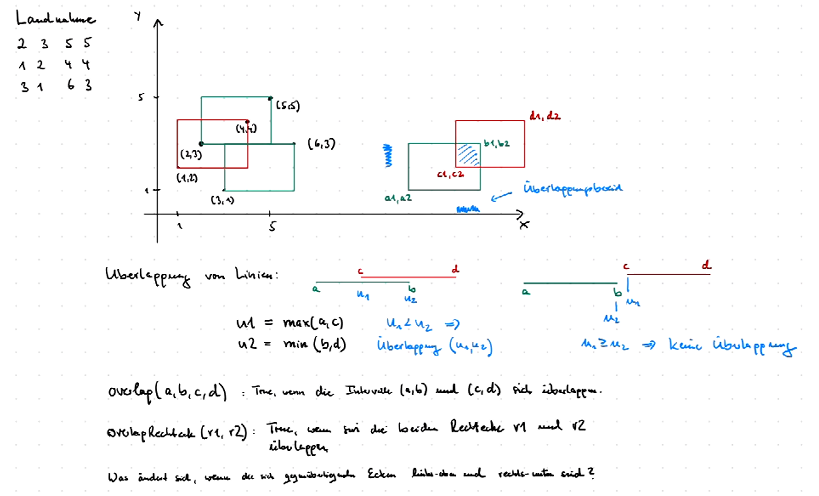 Landnahme
2 3 5 5
1 2 4 4
3 1 6 3
Y
5
1
1
5
X
(5,5)
(4,4)
(2,3)
(6,3)
(1,2)
(3,1)
d1,d2
b1,b2
c1,c2
a1,a2
Überlappungsbereich
Überlappung von Linien:
a
c
b
d
u1
u2
a
b
c
d
u1
u2
u1 = max(a,c) u1 < u2 =>
u2 = min(b,d) Überlappung (u1,u2) u1 ≥ u2 => keine Überlappung
overlap(a,b,c,d) : True, wenn die Intervalle (a,b) und (c,d) sich überlappen.
overlapRechteck(r1, r2): True, wenn sich die beiden Rechtecke r1 und r2
überlappen
Was ändert sich, wenn die sich gegenüberliegenden Ecken links-oben und rechts-unten sind?